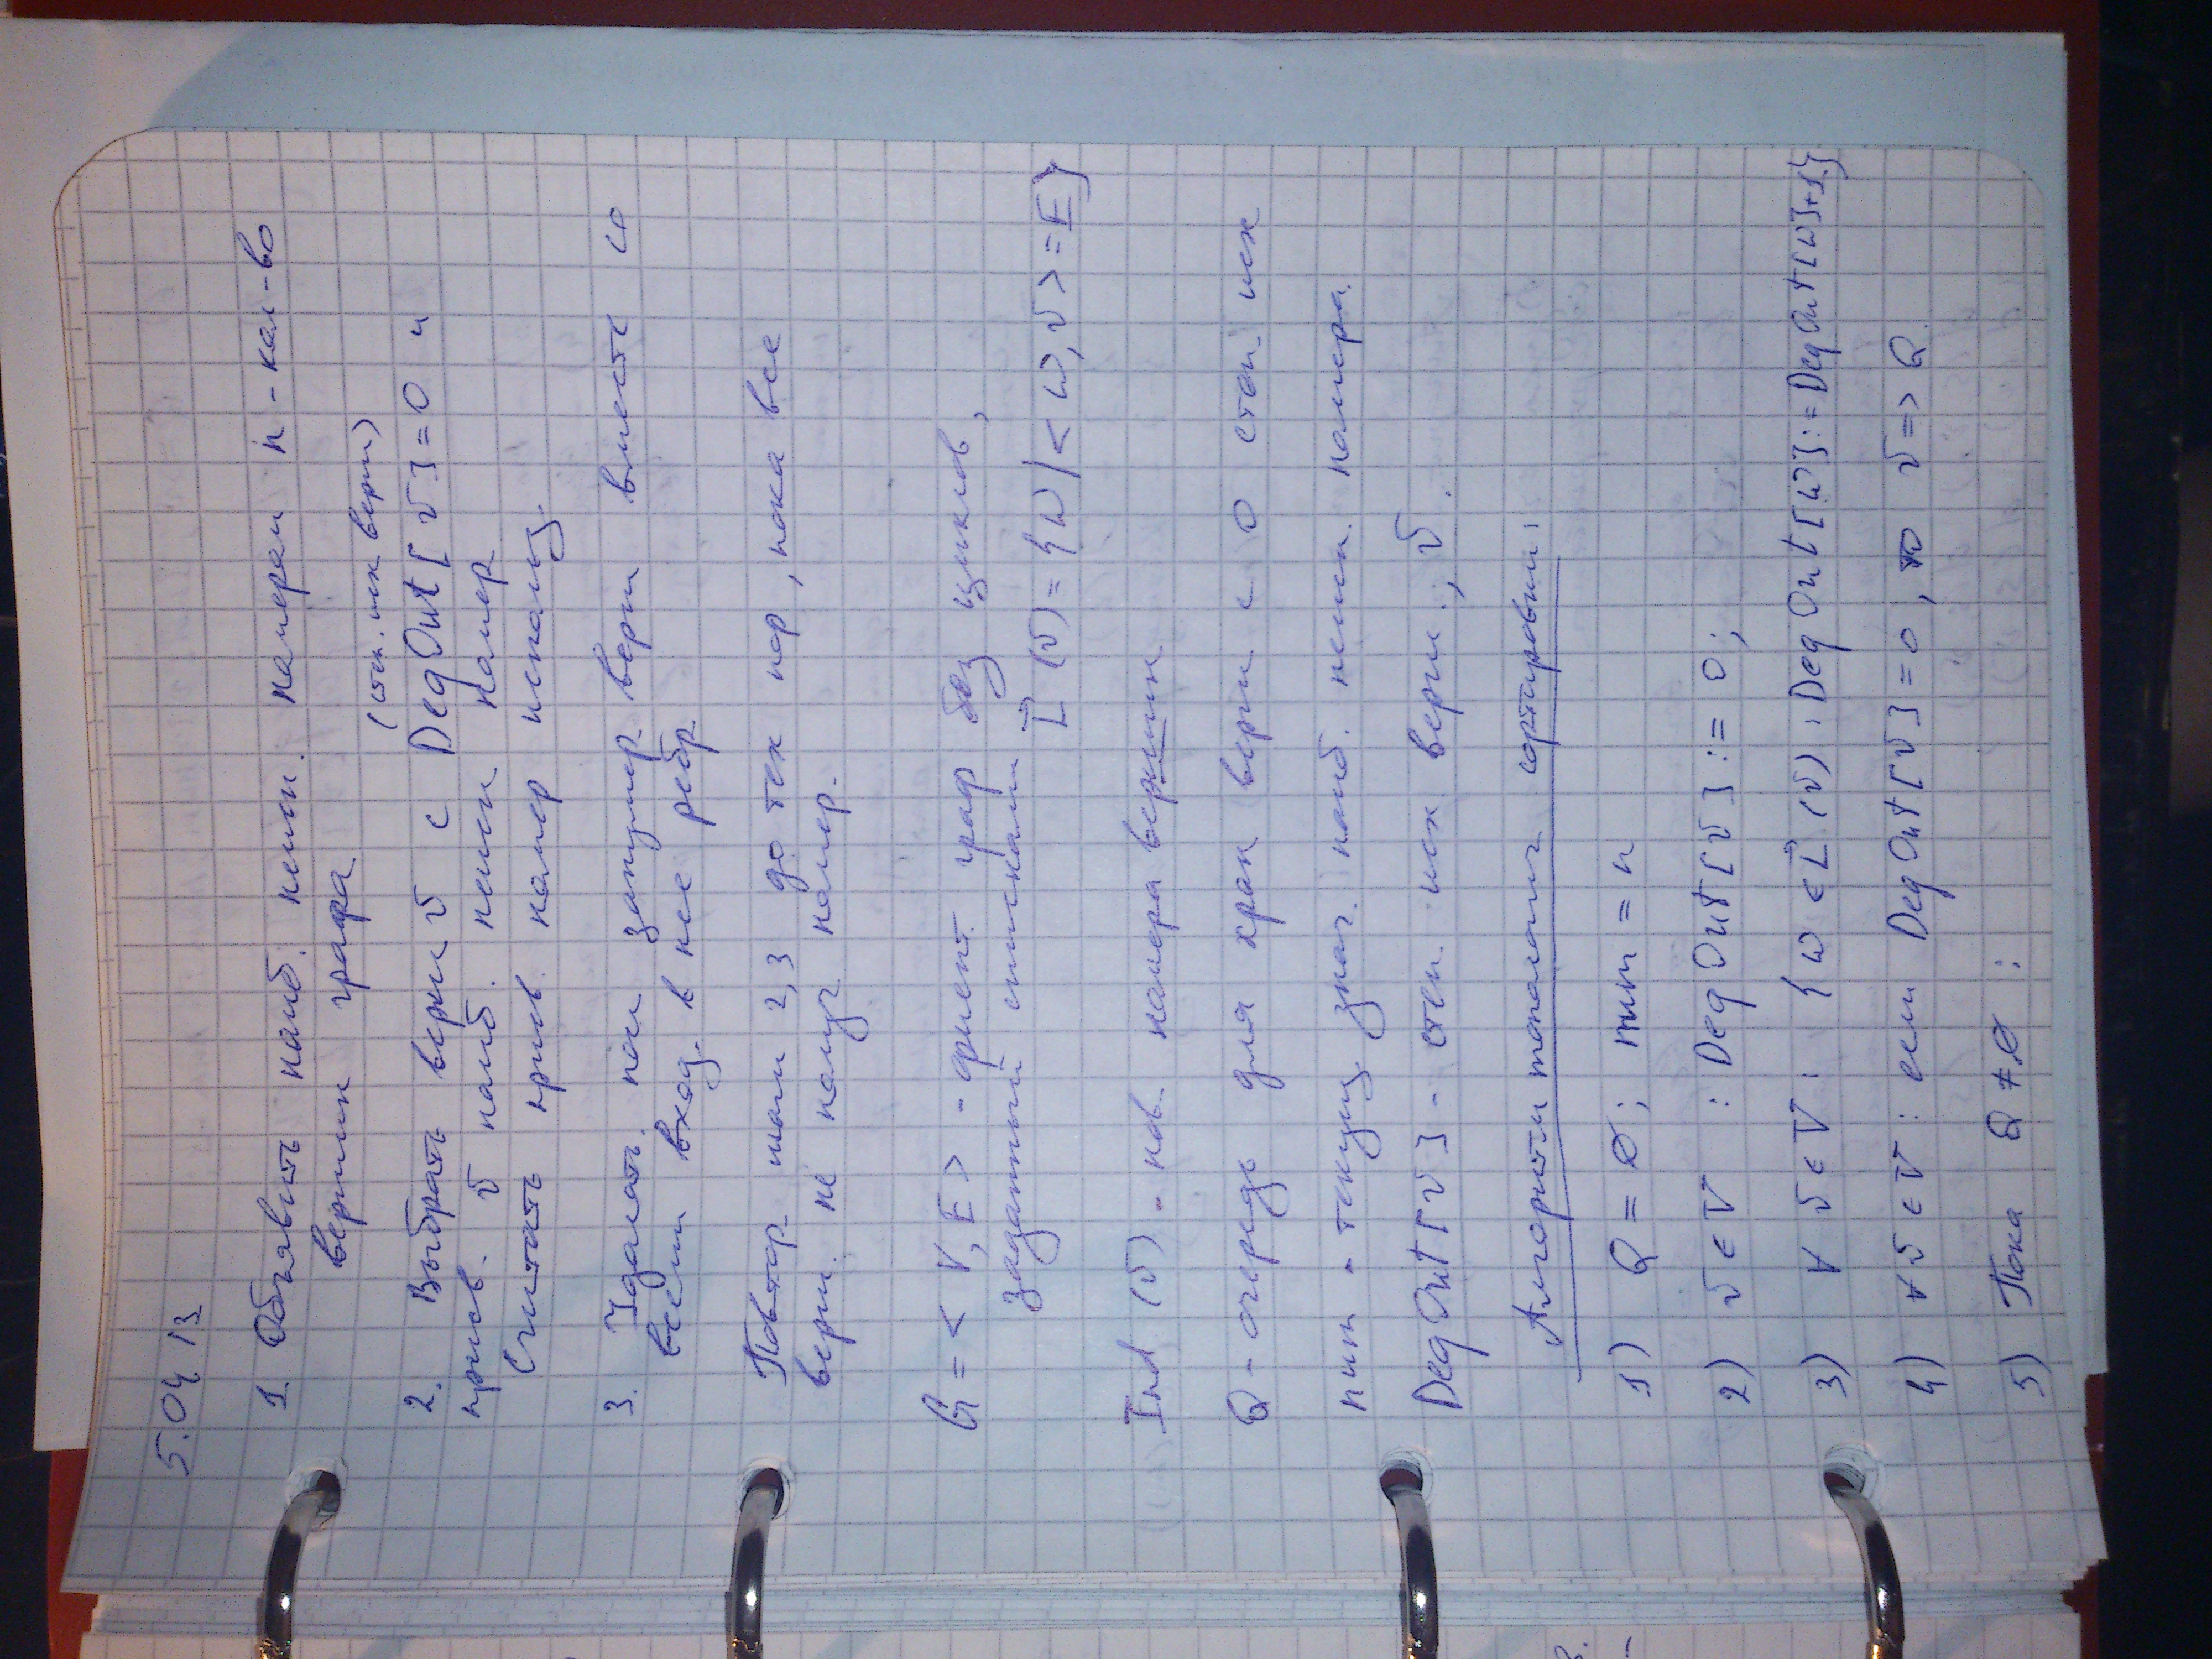 5.04.13
1. Объявить наиб. неисп. номером n - кол-во
вершин графа
(степ. исх верш)
2. Выбрать верш v с DegOut[v]=0 и
присв. v наиб. неисп номер
Считать присв. номер использ.
3. Удалить. пом занумер. верш вместе со
всеми вход. в нее ребр.
Повтор. шаги 2,3 до тех пор, пока все
верш. не получ. номер.
G = < V, E > - ориент. граф без циклов,
заданный списками L⃗(v) = {w | < w, v > = E}
Ind (v) - нов. номера вершин
Q - очередь для хран верш с 0 степ. исх
num - текущ. знач. наиб. неисп. номера.
DegOut[v] - степ. исх верш., v.
Алгоритм топологич сортировки:
1) Q = ∅; num = n
2) v ∈ V : DegOut[v] := 0;
3) ∀ v ∈ V : {w ∈ L⃗(v) : DegOut[w] := DegOut[w]+1}
4) ∀ v ∈ V : если DegOut[v] = 0, то v => Q.
5) Пока Q ≠ ∅ :